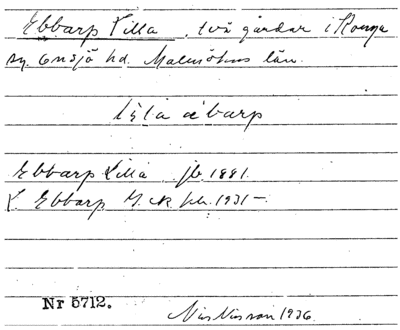 Ebbarp Lilla, två gårdar i Konga
sn. Onsjö hd. Malmöhus län.
lila äbarp
Ebbarp Lilla jb. 1881.
L. Ebbarp 1931 –
Nr 5712.
Nils Nilsson 1936